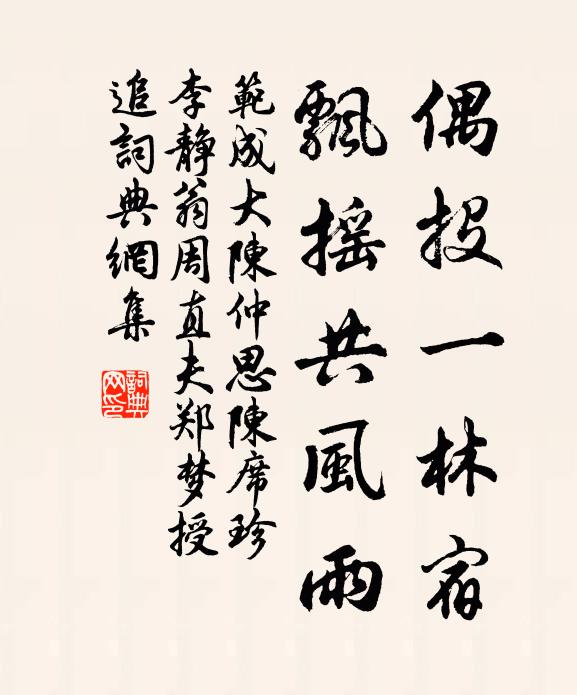 偶投一林宿
飄摇共風雨
範成大陳仲思陳席珍
李静翁周直夫郑梦授
追詞典網集
詞典網印